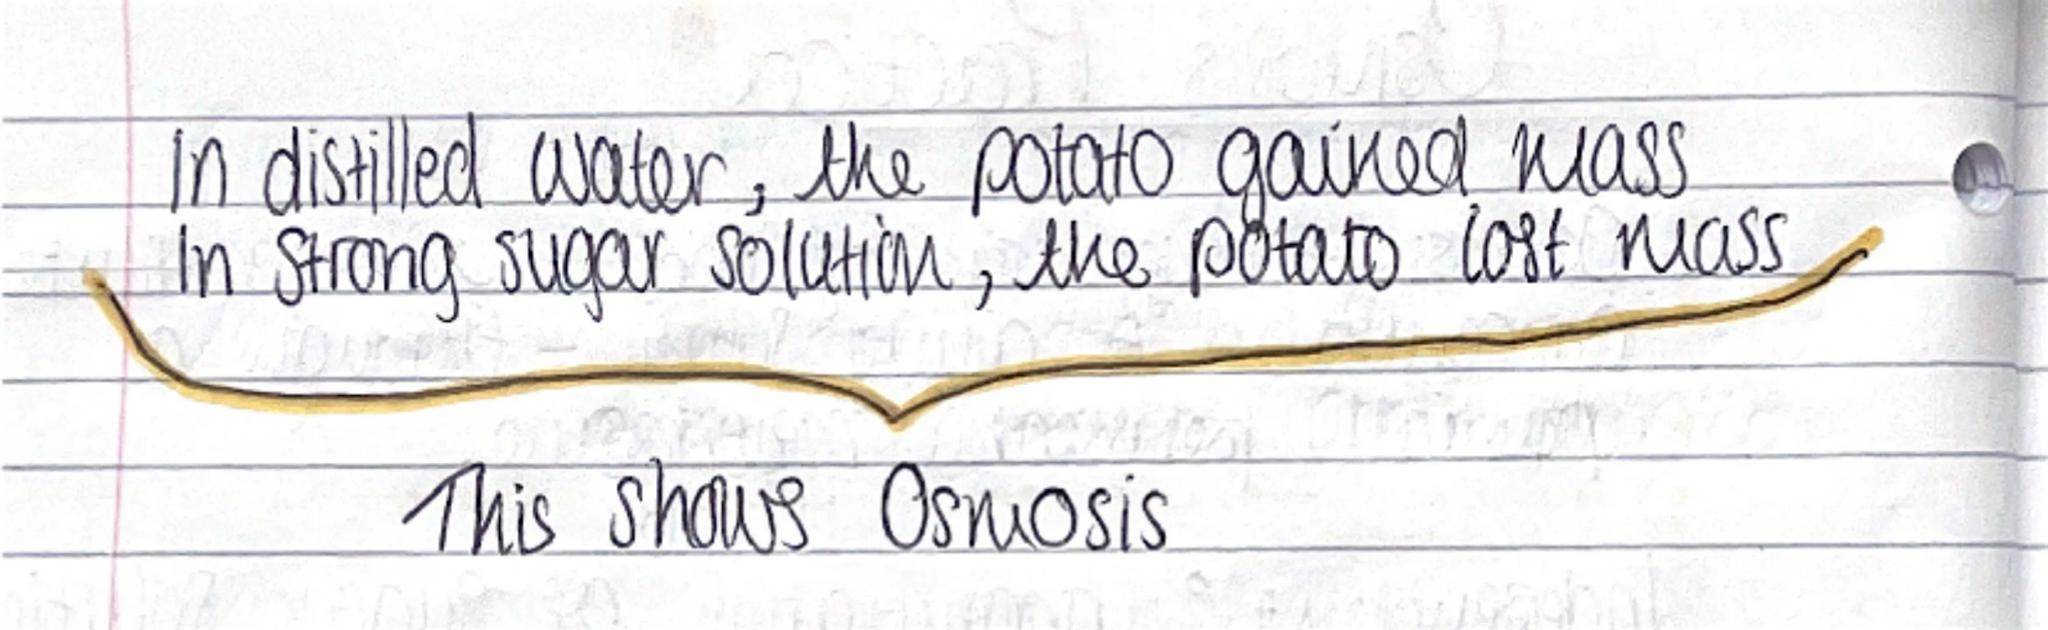 In distilled water, the potato gained mass
In strong sugar solution, the potato lost mass
This shows Osmosis